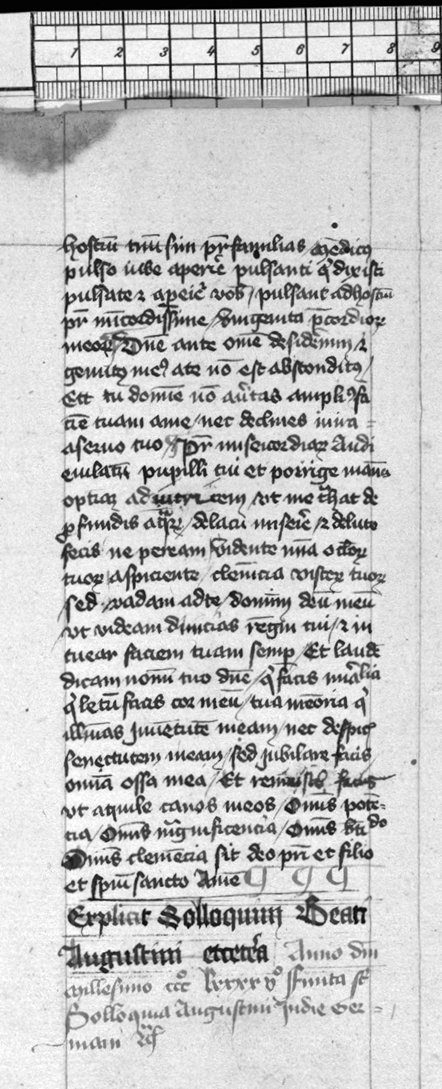 1 2 3 4 5 6 7 8 9
hostiū tuū sim pr̄familias mēdicꝰ
pulso iube aperir̄ pulsanti qͥ dixisti
pulsate ⁊ apeiet͛ vob̄ / pulsant ad hostiū
pr̄ mīcordissime / īugenita p̄cordioꝝ
meoꝝ / Dn̄e ante om̄e desideriū ⁊
gemitꝰ meꝰ a te nō est absconditꝰ /
Ett tu domīe nō au͛tas amplꝰ fa
ciē tuam a me / nec declines in ira =
a seruo tuo / Pr̄ misericordiaꝝ Audi
eiulatū pupilli tui et porrige manū
optīaꝫ adiutricem / vt me t͛hat de
ꝓfundis aqͣꝝ / de lacu miserie ⁊ de luto
fecis ne peream vidente oc̄loꝝ
tuoꝝ aspiciente / clemīcia visceꝝ tuoꝝ
sed vadam ad te / dominū deū meū
vt videam diuicias regni tui / ⁊ in
tuear faciem tuam semp̱ / Et laudē
dicam nomī tuo dn̄e / qͥ facis mirͣlia
qͥ letū facis cor meū / tua memoria qͥ
illuīas iuuētutē meam / nec despicͥ
senectutem meam / sed iubilare facis
omīa ossa mea / Et facis
vt aquile canos meos / Om̄is potē=
cia / Om̄is mͣgnificencia / Om̄is
Om̄is clemēcia sit deo pr̄i et filio
et spūi sancto Ame
Explicit Solloquiuꝫ Beati
Augustini etcetera Anno dn̄i
millesimo cccͦ lxxxxvͦ Finita sͭ
Solloquia Augustini in die Ger=
mani ⁊c̄